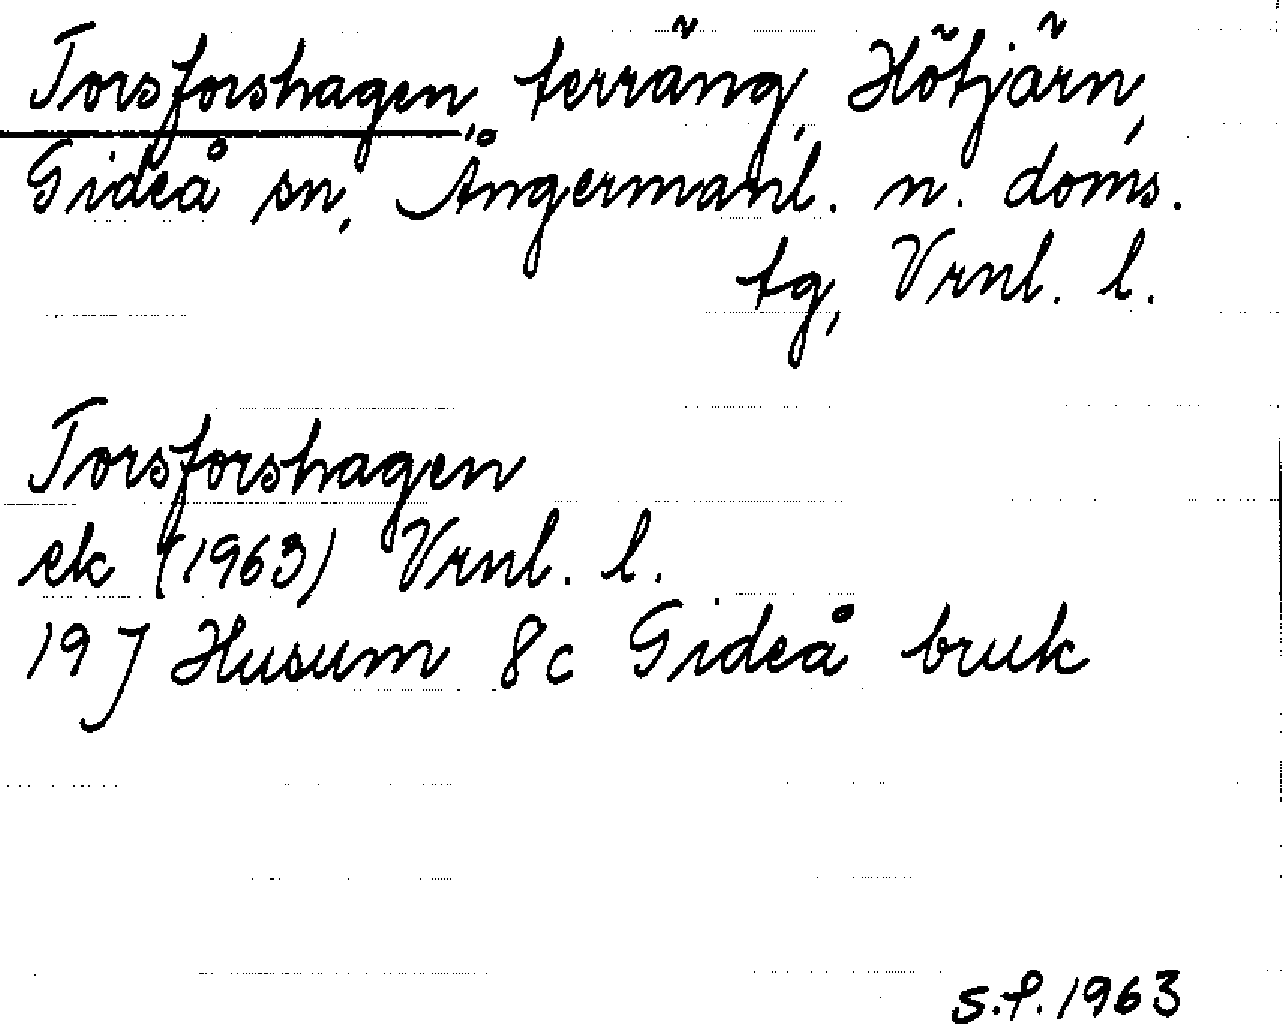 Torsforshagen, terräng, Hötjärn,
Gideå sn, Ångermanl. n. doms.
tg, Vrnl. l.
Torsforshagen
ek (1963) Vrnl. l.
19 J Husum 8c Gideå bruk
S.f. 1963